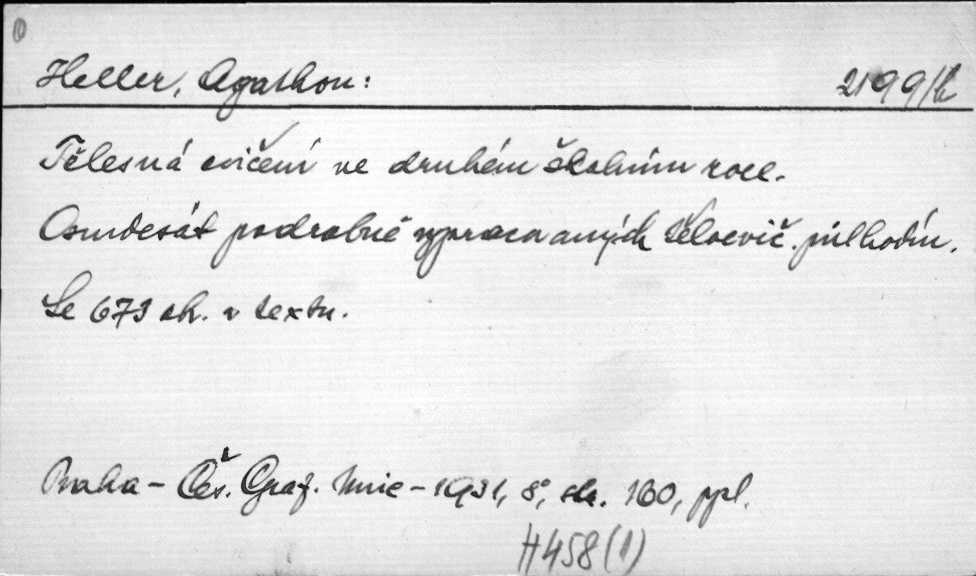 Heller, Agathon: 2199/h
Tělesná cvičení ve druhém školním roce.
Osmdesát podrobně vypracovaných tělocvič. půlhodin.
Se 673 obr. v textu.
Praha - Čes. Graf. Unie - 1931, 8°, str. 160, ppl.
H458(1)